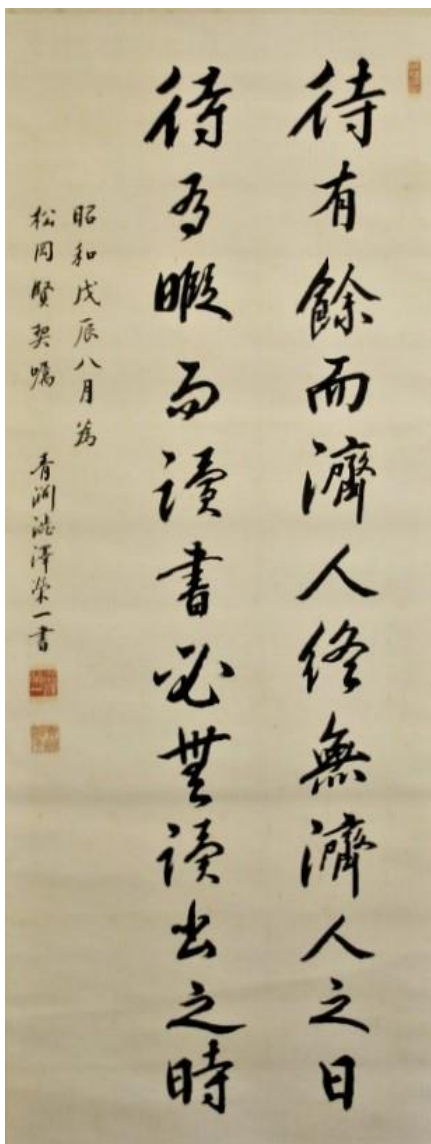 待有餘而濟人終無濟人之日
待有暇而讀書必無讀書之時
昭和戊辰八月爲
松岡賢契囑 青淵澁澤榮一書